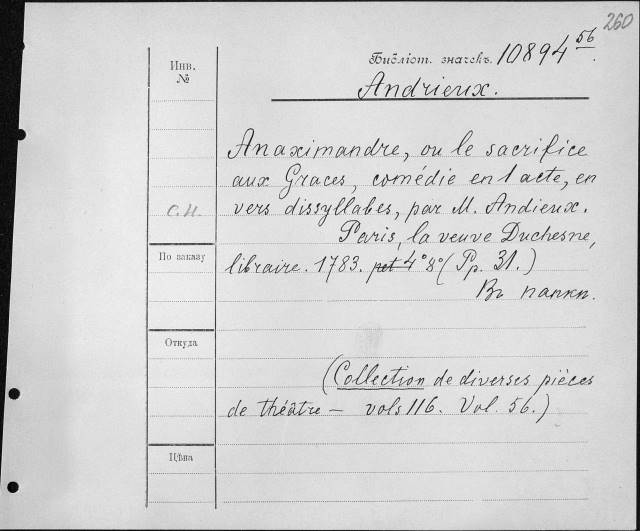 260
Инв.
№
Библіот. значекъ. 10894 56.
Andrieux.
Anaximandre, ou le sacrifice
aux Graces, comédie en 1 acte, en
С.И. vers dissyllabes, par M. Andieux.
Paris, la veuve Duchesne,
По заказу
libraire. 1783. pet 4° 8° (Pp. 31.)
Въ папкѣ.
Откуда
(Collection de diverses pièces
de théâtre — vols 116. Vol. 56.)
Цѣна